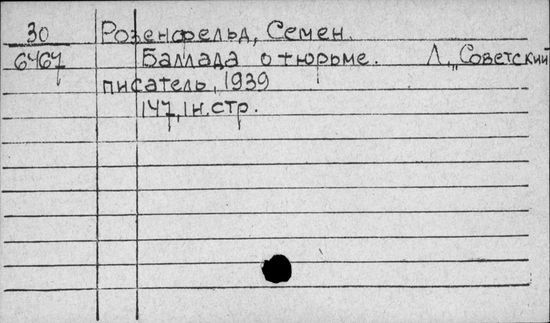 30 Розенфельд, Семен.
6467 Баллада о тюрьме. Л, „Советский
писатель, 1939
147, 1н.стр.